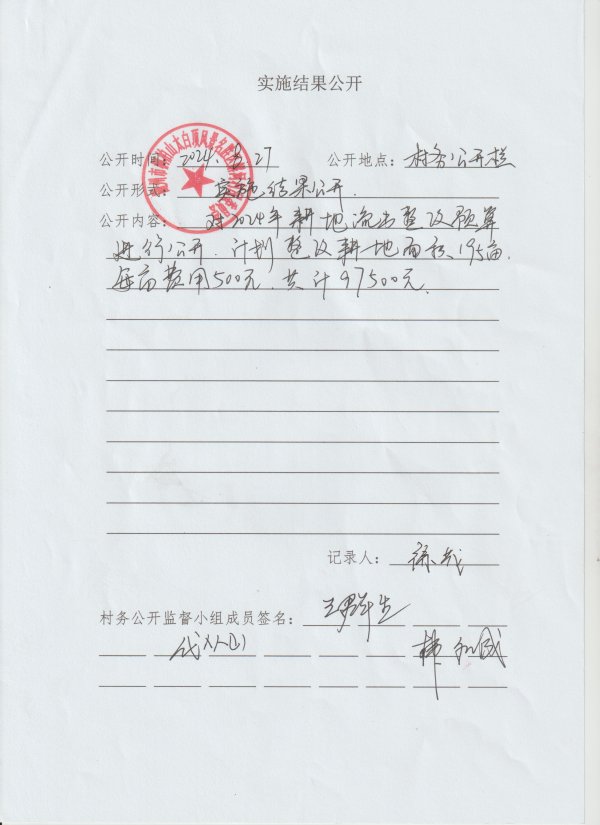 实施结果公开
公开时间：2024.8.27 公开地点：村务公开栏
公开形式：实施结果公开.
公开内容：对2024年耕地流出整改预算
进行公开.计划整改耕地面积195亩.
每亩费用500元.共计97500元.
记录人：
村务公开监督小组成员签名：